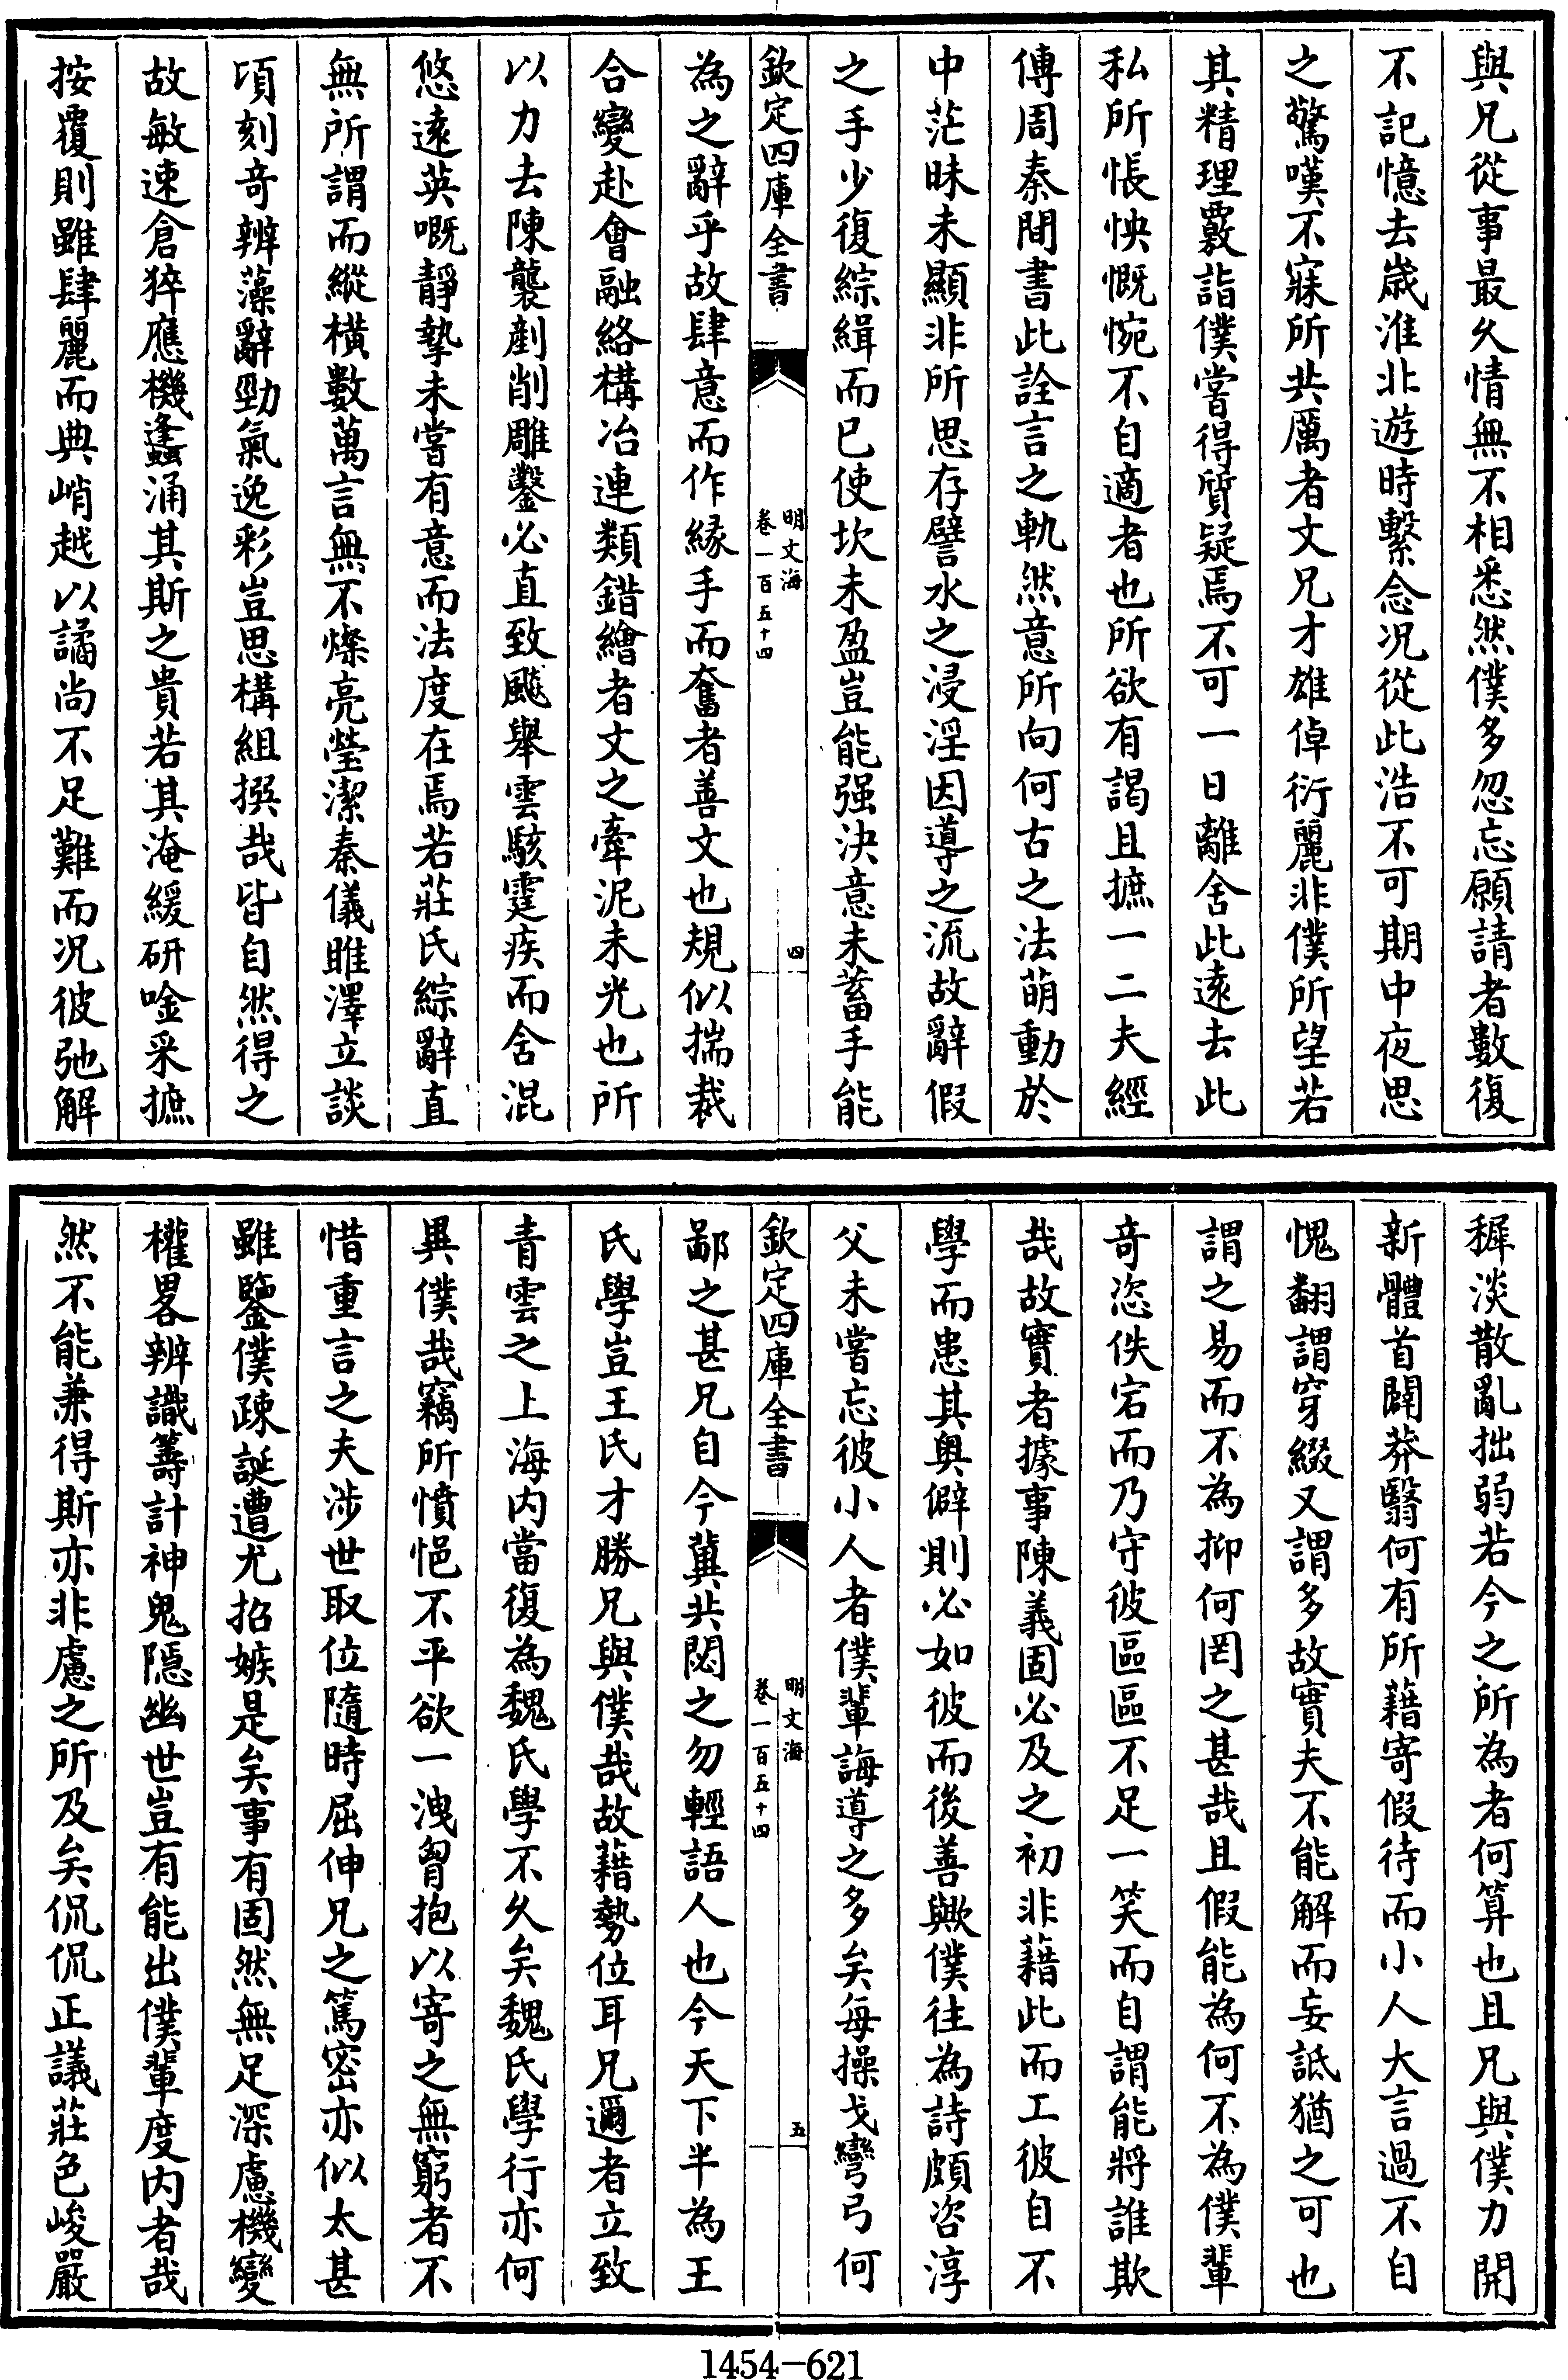 與兄從事最久情無不相悉然僕多忽忘願請者數復
不記憶去歲淮非遊時繫念况從此浩不可期中夜思
之驚嘆不寐所共厲者文兄才雄倬衍麗非僕所望若
其精理覈詣僕嘗得質疑焉不可一日離舍此遠去此
私所悵怏慨惋不自適者也所欲有謁且摭一二夫經
傳周秦間書此詮言之軌然意所向何古之法萌動於
中茫昧未顯非所思存譬水之浸淫因導之流故辭假
之手少復綜緝而已使坎未盈豈能强決意未蓄手能
欽定四庫全書
明文海
卷一百五十四
四
為之辭乎故肆意而作緣手而奮者善文也規似揣裁
合變赴會融絡構冶連類錯繪者文之牽泥未光也所
以力去陳襲剷削雕鑿必直致飈舉雲駭霆疾而舍混
悠遠英嘅靜摯未嘗有意而法度在焉若莊氏綜辭直
無所謂而縱横數萬言無不燦亮瑩潔秦儀睢澤立談
頃刻奇辨藻辭勁氣逸彩豈思構組撰哉皆自然得之
故敏速倉猝應機蠭涌其斯之貴若其淹緩研唫采摭
按覆則雖肆麗而典峭越以譎尚不足難而况彼弛解
穉淡散亂拙弱若今之所為者何算也且兄與僕力開
新體首闢莽翳何有所藉寄假待而小人大言過不自
愧翻謂穿綴又謂多故實夫不能解而妄詆猶之可也
謂之易而不為抑何罔之甚哉且假能為何不為僕輩
奇恣佚宕而乃守彼區區不足一笑而自謂能將誰欺
哉故實者據事陳義固必及之初非藉此而工彼自不
學而患其奥僻則必如彼而後善歟僕往為詩頗咨淳
父未嘗忘彼小人者僕輩誨導之多矣每操戈彎弓何
欽定四庫全書
明文海
卷一百五十四
五
鄙之甚兄自今冀共閟之勿輕語人也今天下半為王
氏學豈王氏才勝兄與僕哉故藉勢位耳兄邇者立致
青雲之上海内當復為魏氏學不久矣魏氏學行亦何
異僕哉竊所憤悒不平欲一洩胷抱以寄之無窮者不
惜重言之夫涉世取位隨時屈伸兄之篤密亦似太甚
雖鑒僕疎誕遭尤招嫉是矣事有固然無足深慮機變
權畧辨識籌計神鬼隱幽世豈有能出僕輩度内者哉
然不能兼得斯亦非慮之所及矣侃侃正議莊色峻嚴
1454-621